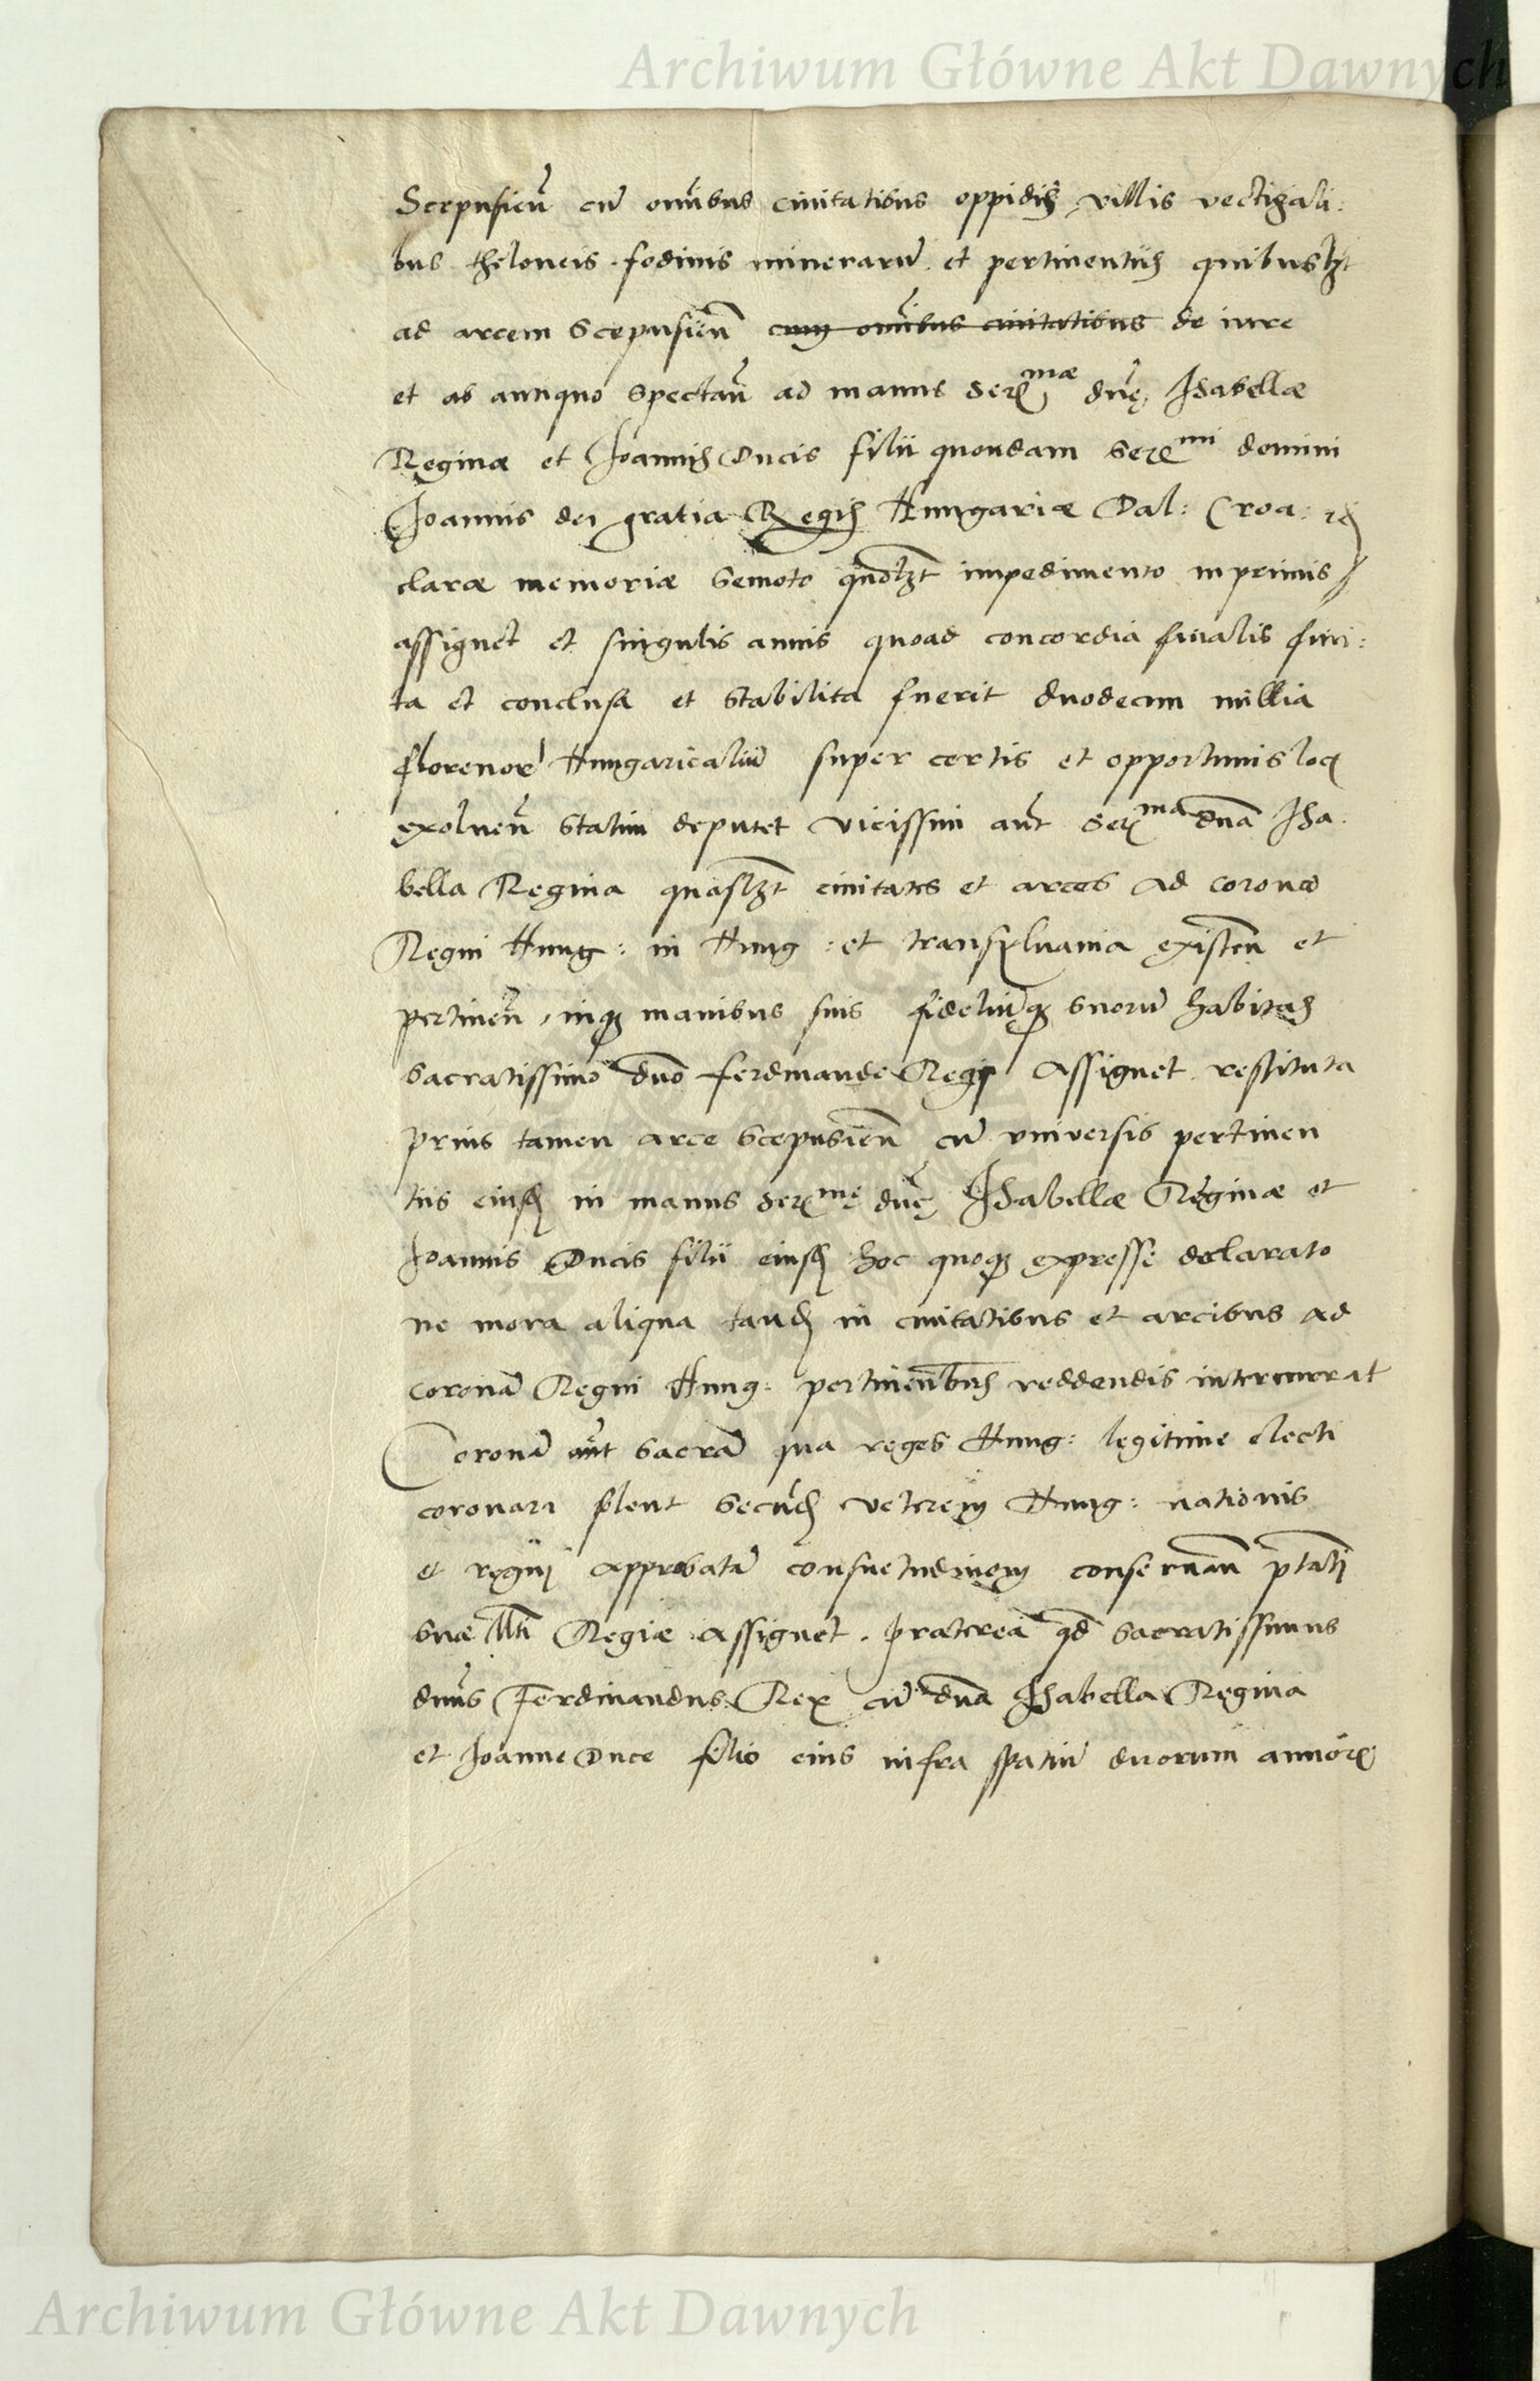 Archiwum Główne Akt Dawnych
Scepusieñ cũ omĩbus ciuitatibus oppidis, villis vectigali:
bus theloneis fodinis minerarũ et pertinentiis quibuslz̃t
ad arcem Scepusieñ cum omĩbus ciuitatibus de iure
et ab antiquo spectañ ad manus Serᵐᵃᵉ dñę Isabellæ
Reginæ et Joannis Ducis filii quondam Serᵐⁱ domini
Joannis dei gratia Regis Hungariæ Dal: Croa: rc̃
claræ memoriæ semoto quolz̃t impedimento inprimis
assignet et singulis annis quoad concordia finalis fini:
ta et conclusa et stabilita fuerit duodecim millia
florenor̃ Hungaricaliũ super certis et opportunis locis
exolueñ statim deputet vicissim aũt Serᵐᵃ dña Isa:
bella Regina quaslz̃t ciuitates et arces ad coronã
Regni Hung: in Hung: et transyluania existeñ et
pertineñ, inq̃ manibus suis fideliũq̃ suorũ habitas
sacratissimo dño ferdinando Regi assignet restituta
prius tamen arce Scepusieñ cũ vniuersis pertinen
tiis eiusd̃ in manus Serᵐę dñę Isabellæ Reginæ et
Joannis Ducis filii eiusd̃ hoc quoq̃ expresse declarato
ne mora aliqua tand̃ in ciuitatibus et arcibus ad
coronã Regni Hung: pertineñbus reddendis intercurrat
Coronã aũt sacrã qua reges Hung: legitime electi
coronari solent secũd̃ veterem Hung: nationis
et regni approbatã consuetudinem conseruañ p̃tati
suæ Mti Regiæ assignet. Præterea qd̃ sacratissimus
dñus Ferdinandus Rex cũ dña Isabella Regina
et Joanne Duce filio eius infra spatiũ duorum annor̃
Archiwum Główne Akt Dawnych